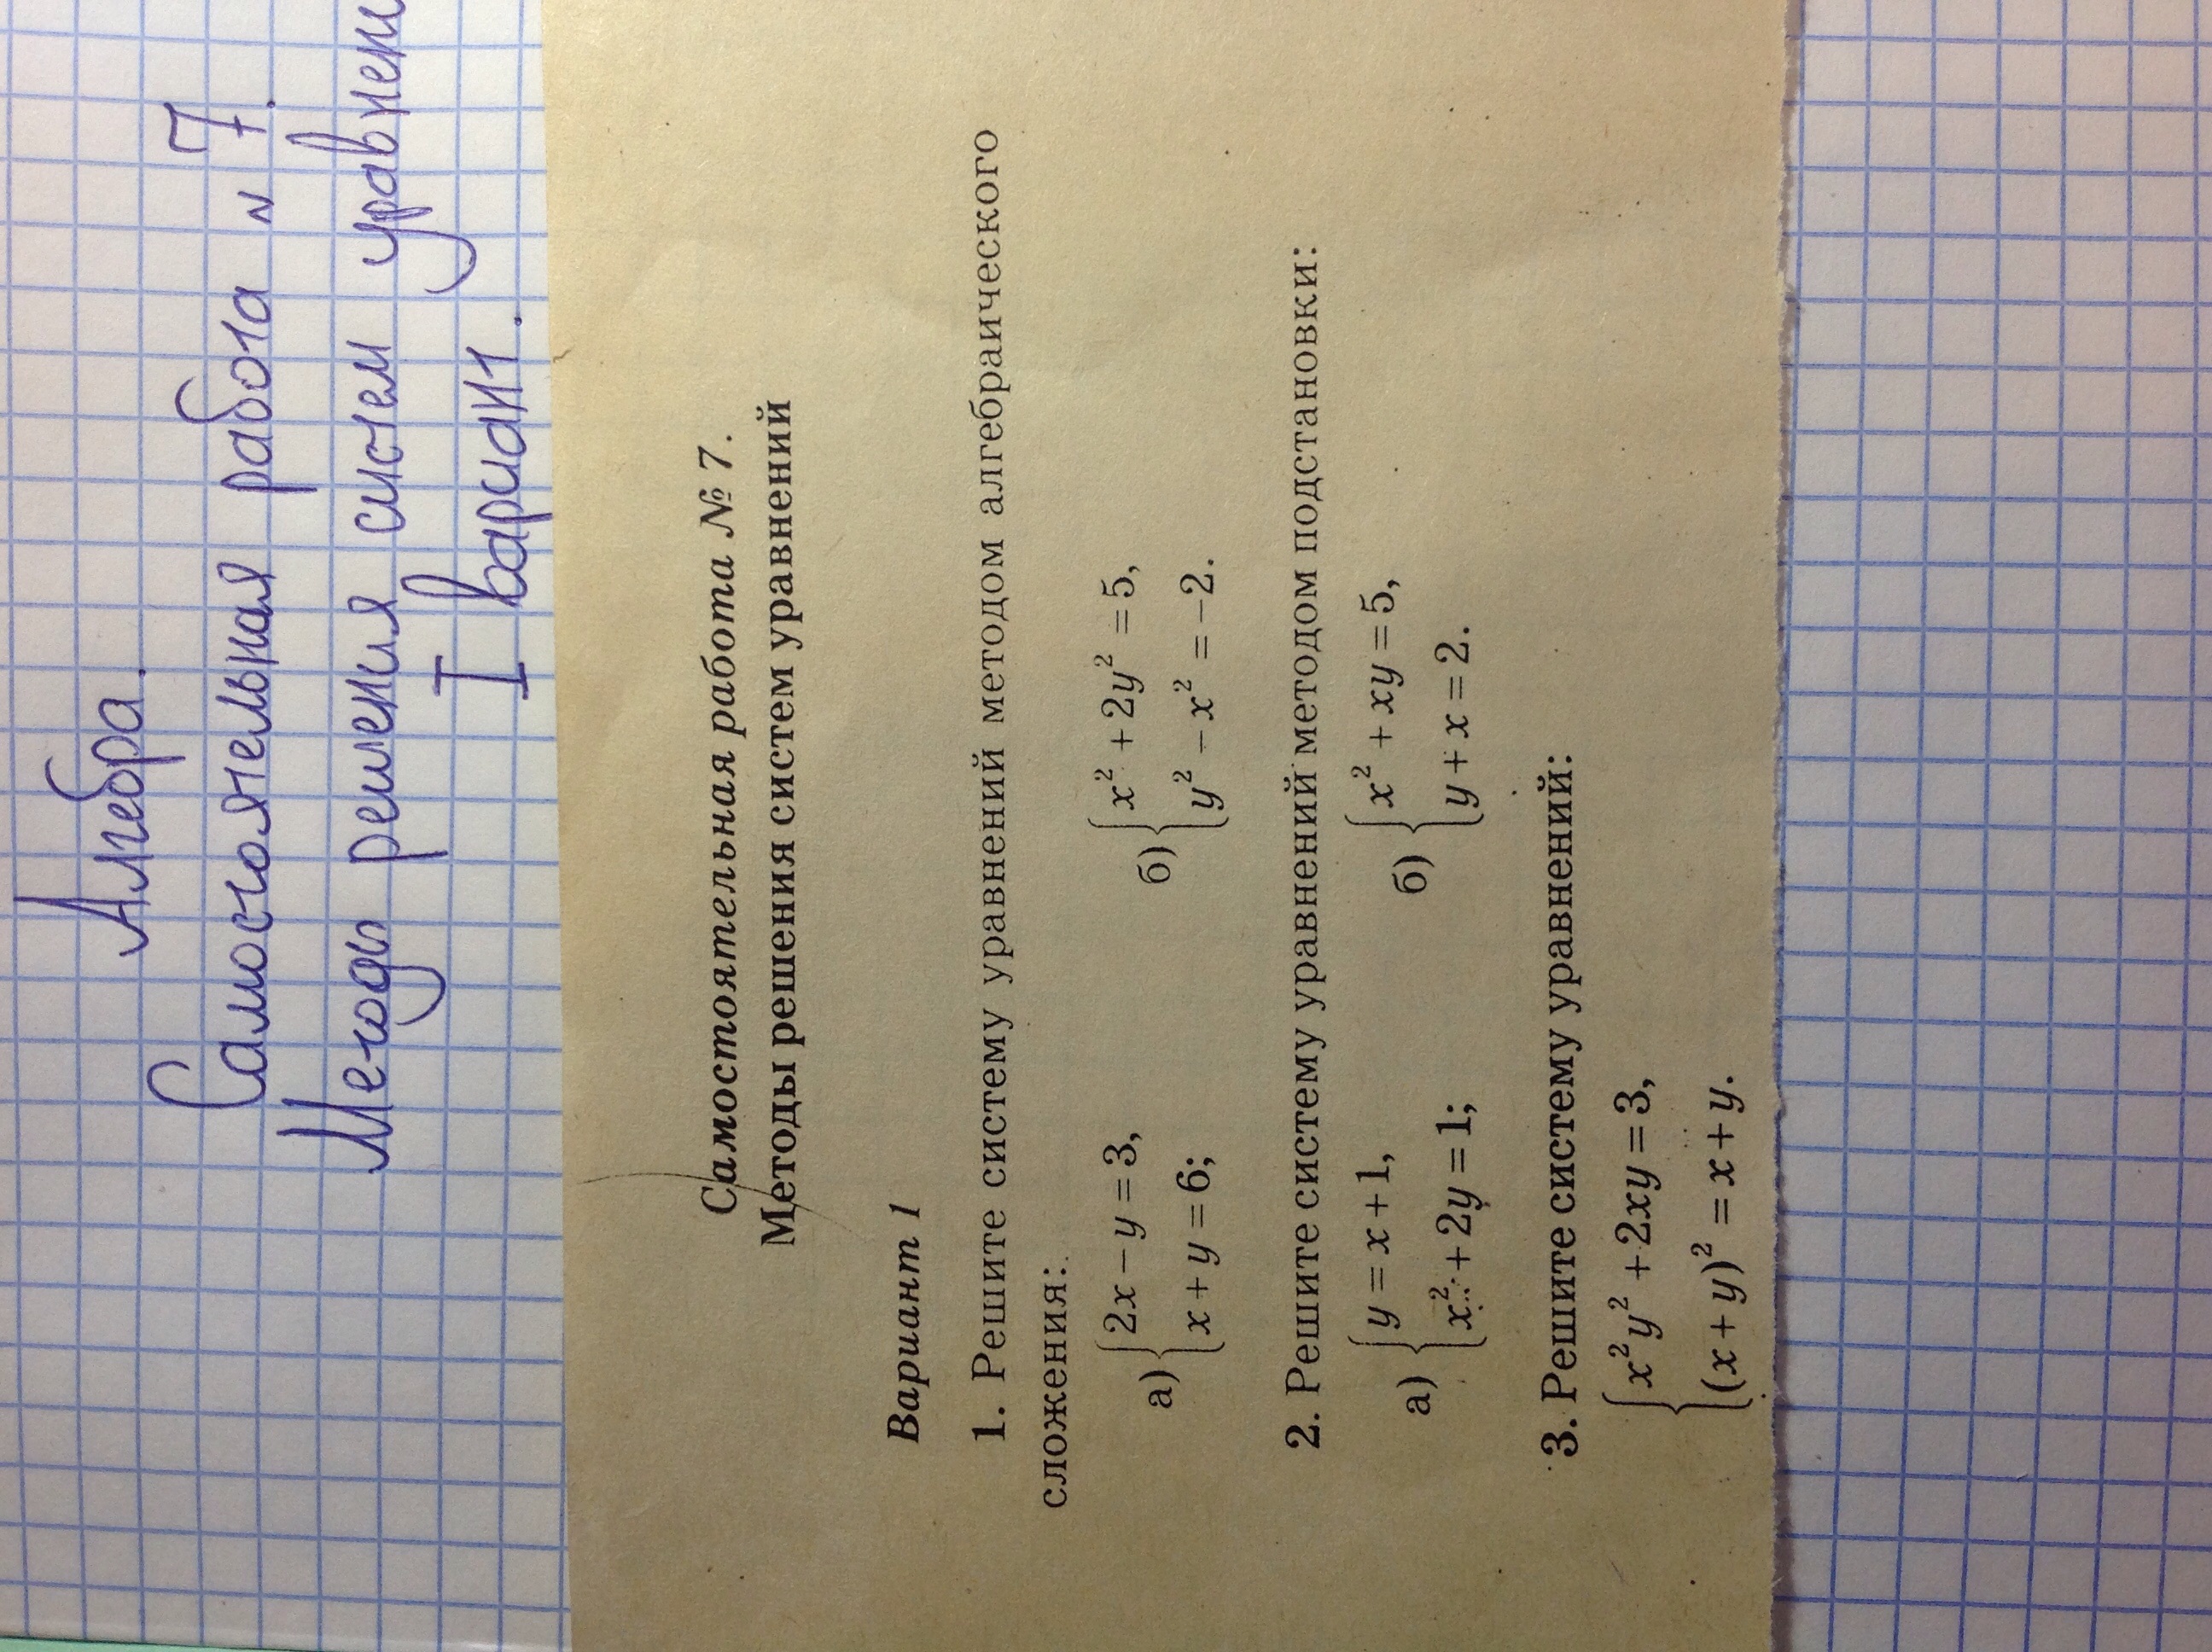 Алгебра.
Самостоятельная работа N 7.
Методы решения систем
I вариант.
Самостоятельная работа № 7.
Методы решения систем уравнений
Вариант 1
1. Решите систему уравнений методом алгебраического
сложения:
а) {2x − y = 3, x + y = 6; б) {x² + 2y² = 5, y² − x² = −2.
2. Решите систему уравнений методом подстановки:
а) {y = x + 1, x² + 2y = 1; б) {x² + xy = 5, y + x = 2.
3. Решите систему уравнений:
{x²y² + 2xy = 3,
(x + y)² = x + y.